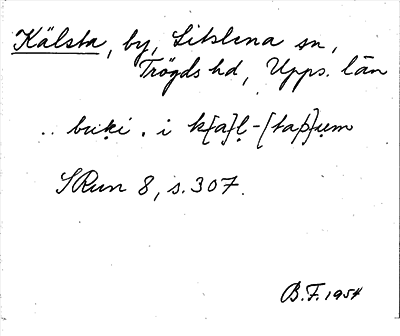 Kälsta, by, Litslena sn,
Trögds hd, Upps. län
.. buḳi . i k[a]ḷ-[stap]ụm
SRun 8, s. 307.
B.F. 1954